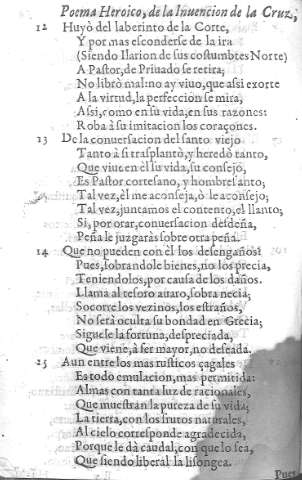 Poema Heroico, de la Inuencion de la Cruz,
12 Huyò del laberinto de la Corte,
Y por mas esconderse de la ira
(Siendo Ilarion de sus costumbtes Norte)
A Pastor, de Priuado se retira;
No librò mal: no ay viuo, que assi exorte
A la virtud, la perfeccion se mira,
Assi, como en su vida, en sus razones:
Roba à su imitacion los coraçones.
13 De la conuersacion del santo viejo
Tanto à si trasplantò, y heredò tanto,
Que viue en èl su vida, su consejo,
Es Pastor cortesano, y hombre santo;
Tal vez, èl me aconseja, ò le aconsejo;
Tal vez, juntamos el contento, el llanto;
Si, por orar, conuersacion desdeña,
Peña le juzgaràs sobre otra peña.
14 Que no pueden con èl los desengaños!
Pues, sobrandole bienes, no los precia,
Teniendolos, por causa de los daños.
Llama al tesoro auaro, sobra necia;
Socorre los vezinos, los estraños,
No serà oculta su bondad en Grecia;
Siguele la fortuna, despreciada,
Que viene, à ser mayor, no deseada.
25 Aun entre los mas rusticos çagales
Es todo emulacion, mas permitida:
Almas con tanta luz de racionales,
Que muestran la pureza de su vida;
La tierra, con los frutos naturales,
Al cielo corresponde agradecida,
Porque le dà caudal, con que lo sea,
Que siendo liberal la lisongea.